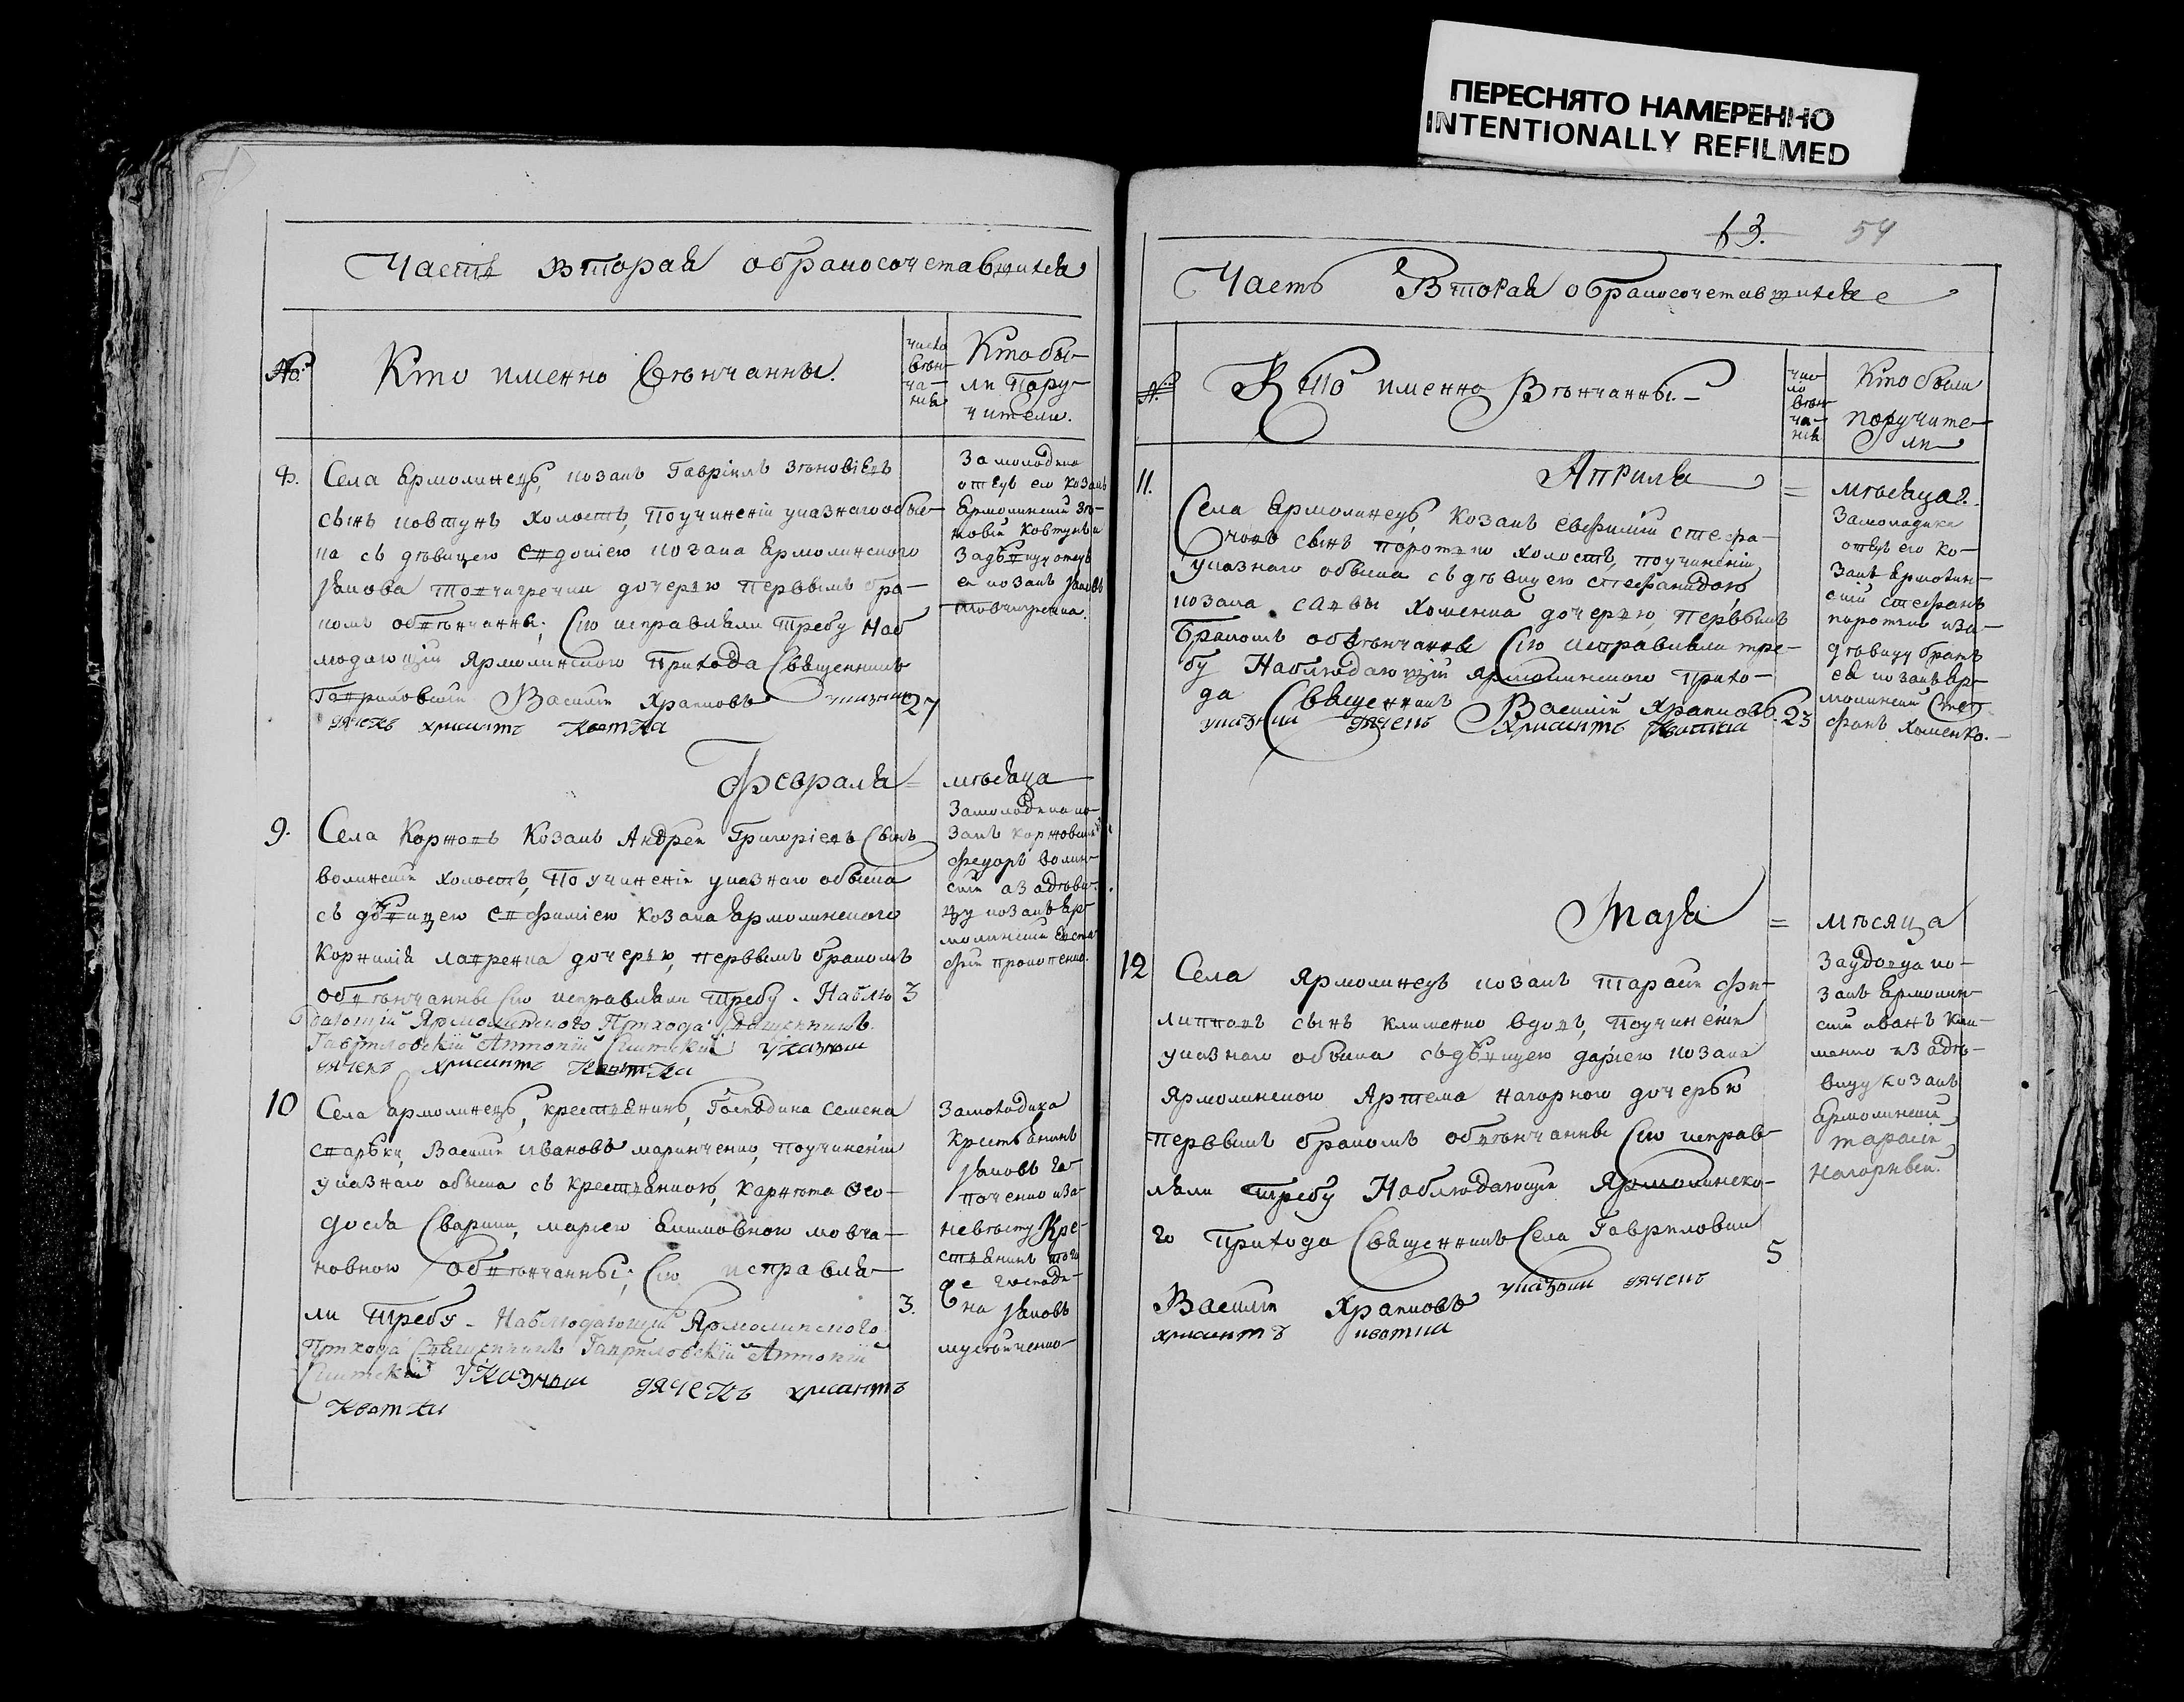 ПЕРЕСНЯТО НАМЕРЕННО
INTENTIONALLY REFILMED
Часть вторая о бракосочетавшихся
№
Кто именно венчанны.
число
венча-
ния
Кто бы-
ли пору-
чители.
8.
Села Ермолинецъ, козакъ Гавріилъ Зѣновіевъ
сынъ Ковтунъ холостъ, по учиненіи указнаго обыс-
ка съ дѣвицею Евдокіею козака Ермолинского
Якова дочерью первымъ бра-
комъ обвѣнчанны; Сію исправляли требу Наб
людающій Ярмолинского Прихода Священникъ
Гавриловский Василий Храповъ указный 27
дячекъ Хрисантъ Квитка
За молодика
отецъ его козакъ
Ермолинский Зѣ-
новій Ковтунъ и
За дѣвицу отецъ
ея козакъ Яковъ
Февраля = мѣсяца
9.
Села Коржовъ Козакъ Андрей Григоріевъ Сынъ
Волинский холостъ, По учиненіи указнаго обыска
съ дѣвицею Евфиміею козака Ермолинского
Корнилія Лавренка дочерью, первымъ бракомъ
обвѣнчанны Сію исправляли требу. Наблю 3
дающій Ярмолинского Прихода Священникъ
Гавриловскій Антоній указный
дячекъ Хрисантъ Квитка
За молодика ко-
закъ Коржовский
Федоръ Волин-
ский а за дѣви-
цу козакъ Ер-
молинский Евста-
фий Прокопенко.
10
Села Ермолинецъ, крестьянинъ, Господина Семена
Василий Ивановъ Маринченко, по учиненіи
указнаго обыска съ крестьянкою, Карнета Ѳео-
досія Маріею Екимовною Мовча-
новною обвѣнчанны; Сію исправля-
ли требу - Наблюдающий Ярмолинского 3.
Прихода Священникъ Гавриловскій Антоній
Указный дячекъ Хрисантъ
Квитка
За молодика
Крестьянинъ
Яковъ
а за
невѣсту Кре-
стьянинъ того
же господи-
на Яковъ
63. 54
Часть Вторая о бракосочетавшихся
№
Кто именно Вѣнчанны.
чис-
ло
вѣн-
ча-
ния
Кто были
поручите-
ли
Априля = мѣсяца
11.
Села Ермолинецъ, Козакъ Евфимий Стефа-
новъ сынъ холостъ, по учиненіи
указнаго обыска съ дѣвицею Стефанидою
козака Саввы Хоменка дочерью, первымъ
бракомъ обвѣнчанны Сію исправляли тре-
бу Наблюдающій Ярмолинского прихо-
да Священникъ Василий Храповъ. 23
указный дячекъ Хрисантъ Квитка
За молодика
отецъ его ко-
закъ Ермолин-
ский Стефанъ
а за
дѣвицу братъ
ея козакъ Ер-
молинский Сте
фанъ Хоменко.
Мая = мѣсяца
12
Села Ярмолинецъ козакъ Тарасий Фи-
липповъ сынъ Клименко вдовъ, по учиненіи
указнаго обыска съ дѣвицею Даріею козака
Ярмолинского Артема Нагорного дочерью
первымъ бракомъ обвѣнчанны Сію исправ-
ляли требу Наблюдающий Ярмолинско-
го Прихода Священникъ Села Гавриловки
Василий Храповъ указный дячекъ 5
Хрисантъ Квитка
За удовца ко-
закъ Ермолин-
ский Иванъ Кли-
менко и за дѣ-
вицу козакъ
Ермолинский
Тарасий
Нагорный.